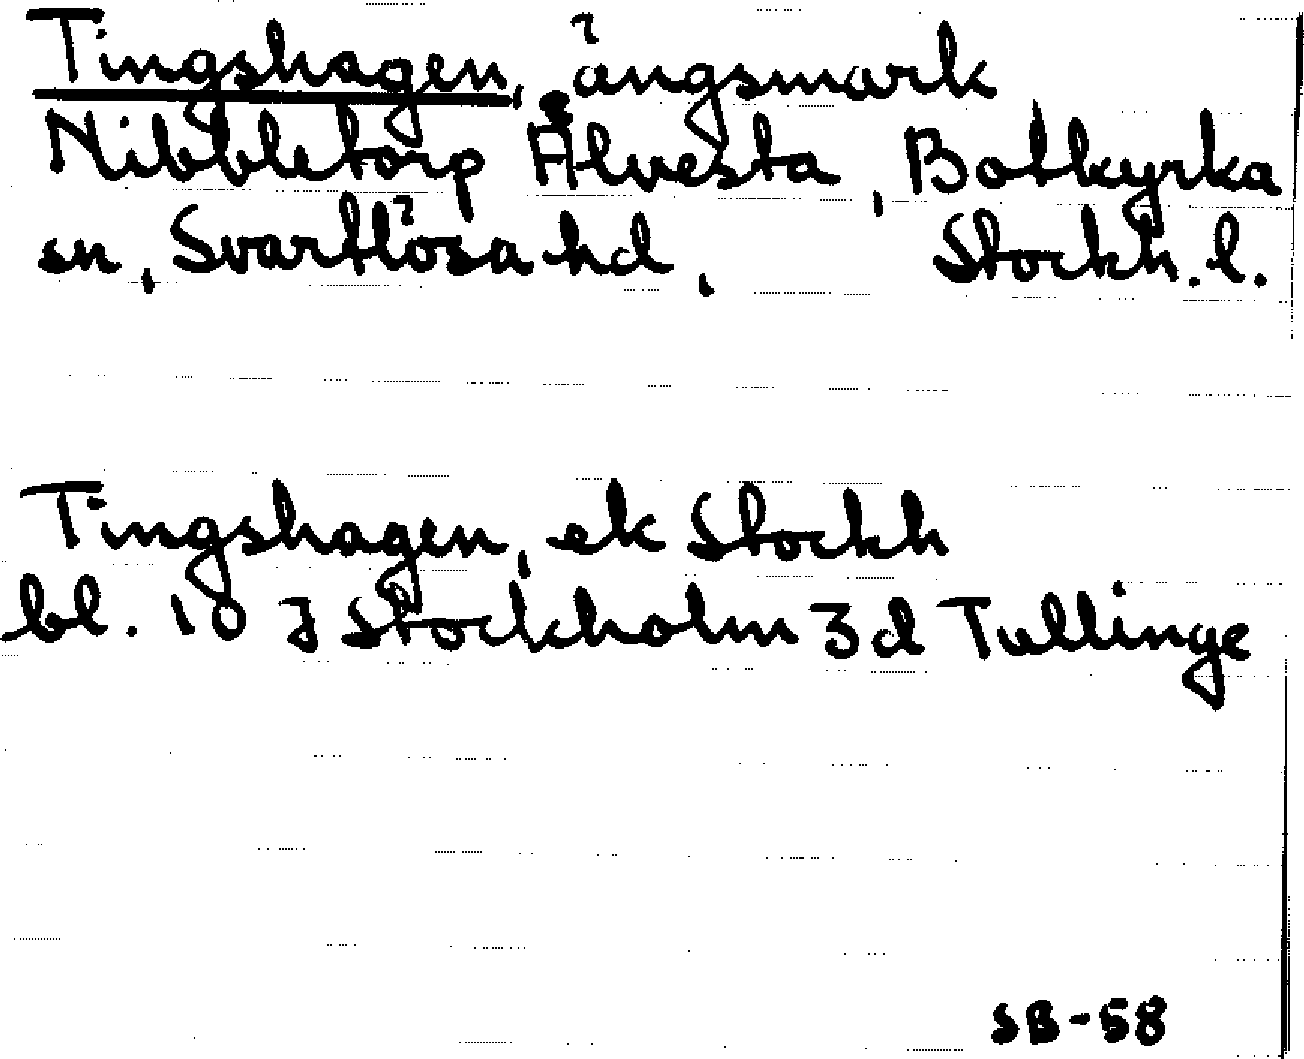 Tingshagen, ängsmark
Nibbletorp Älvesta, Botkyrka
sn, Svartlösa hd, Stockh. l.
Tingshagen, ek Stockh
bl. 10 J Stockholm 3d Tullinge
SB-58